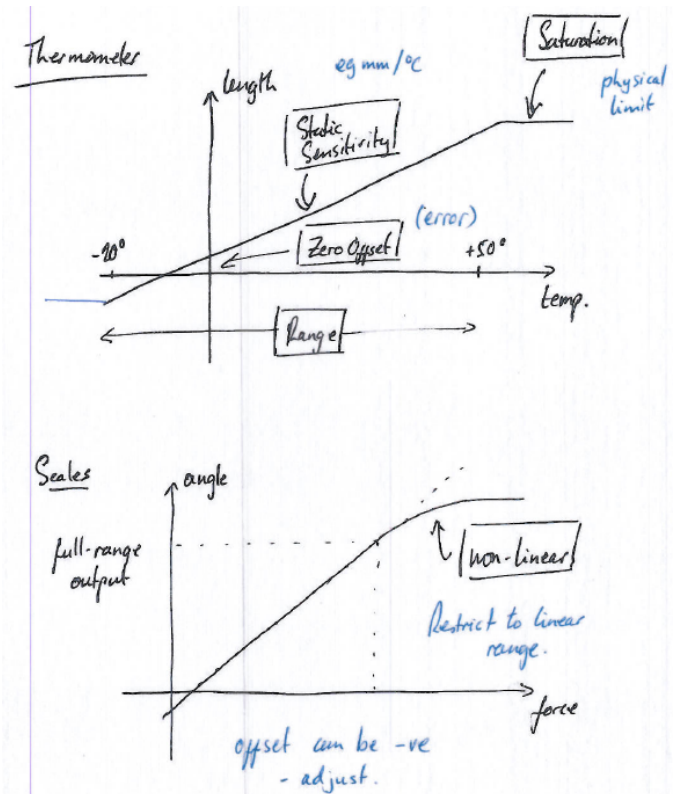 Thermometer
length
eg mm/°C
Saturation
physical
limit
Static
Sensitivity
(error)
Zero Offset
-20°
+50°
temp.
Range
Scales
angle
full-range
output
non-linear
Restrict to linear
range.
force
offset can be -ve
- adjust.